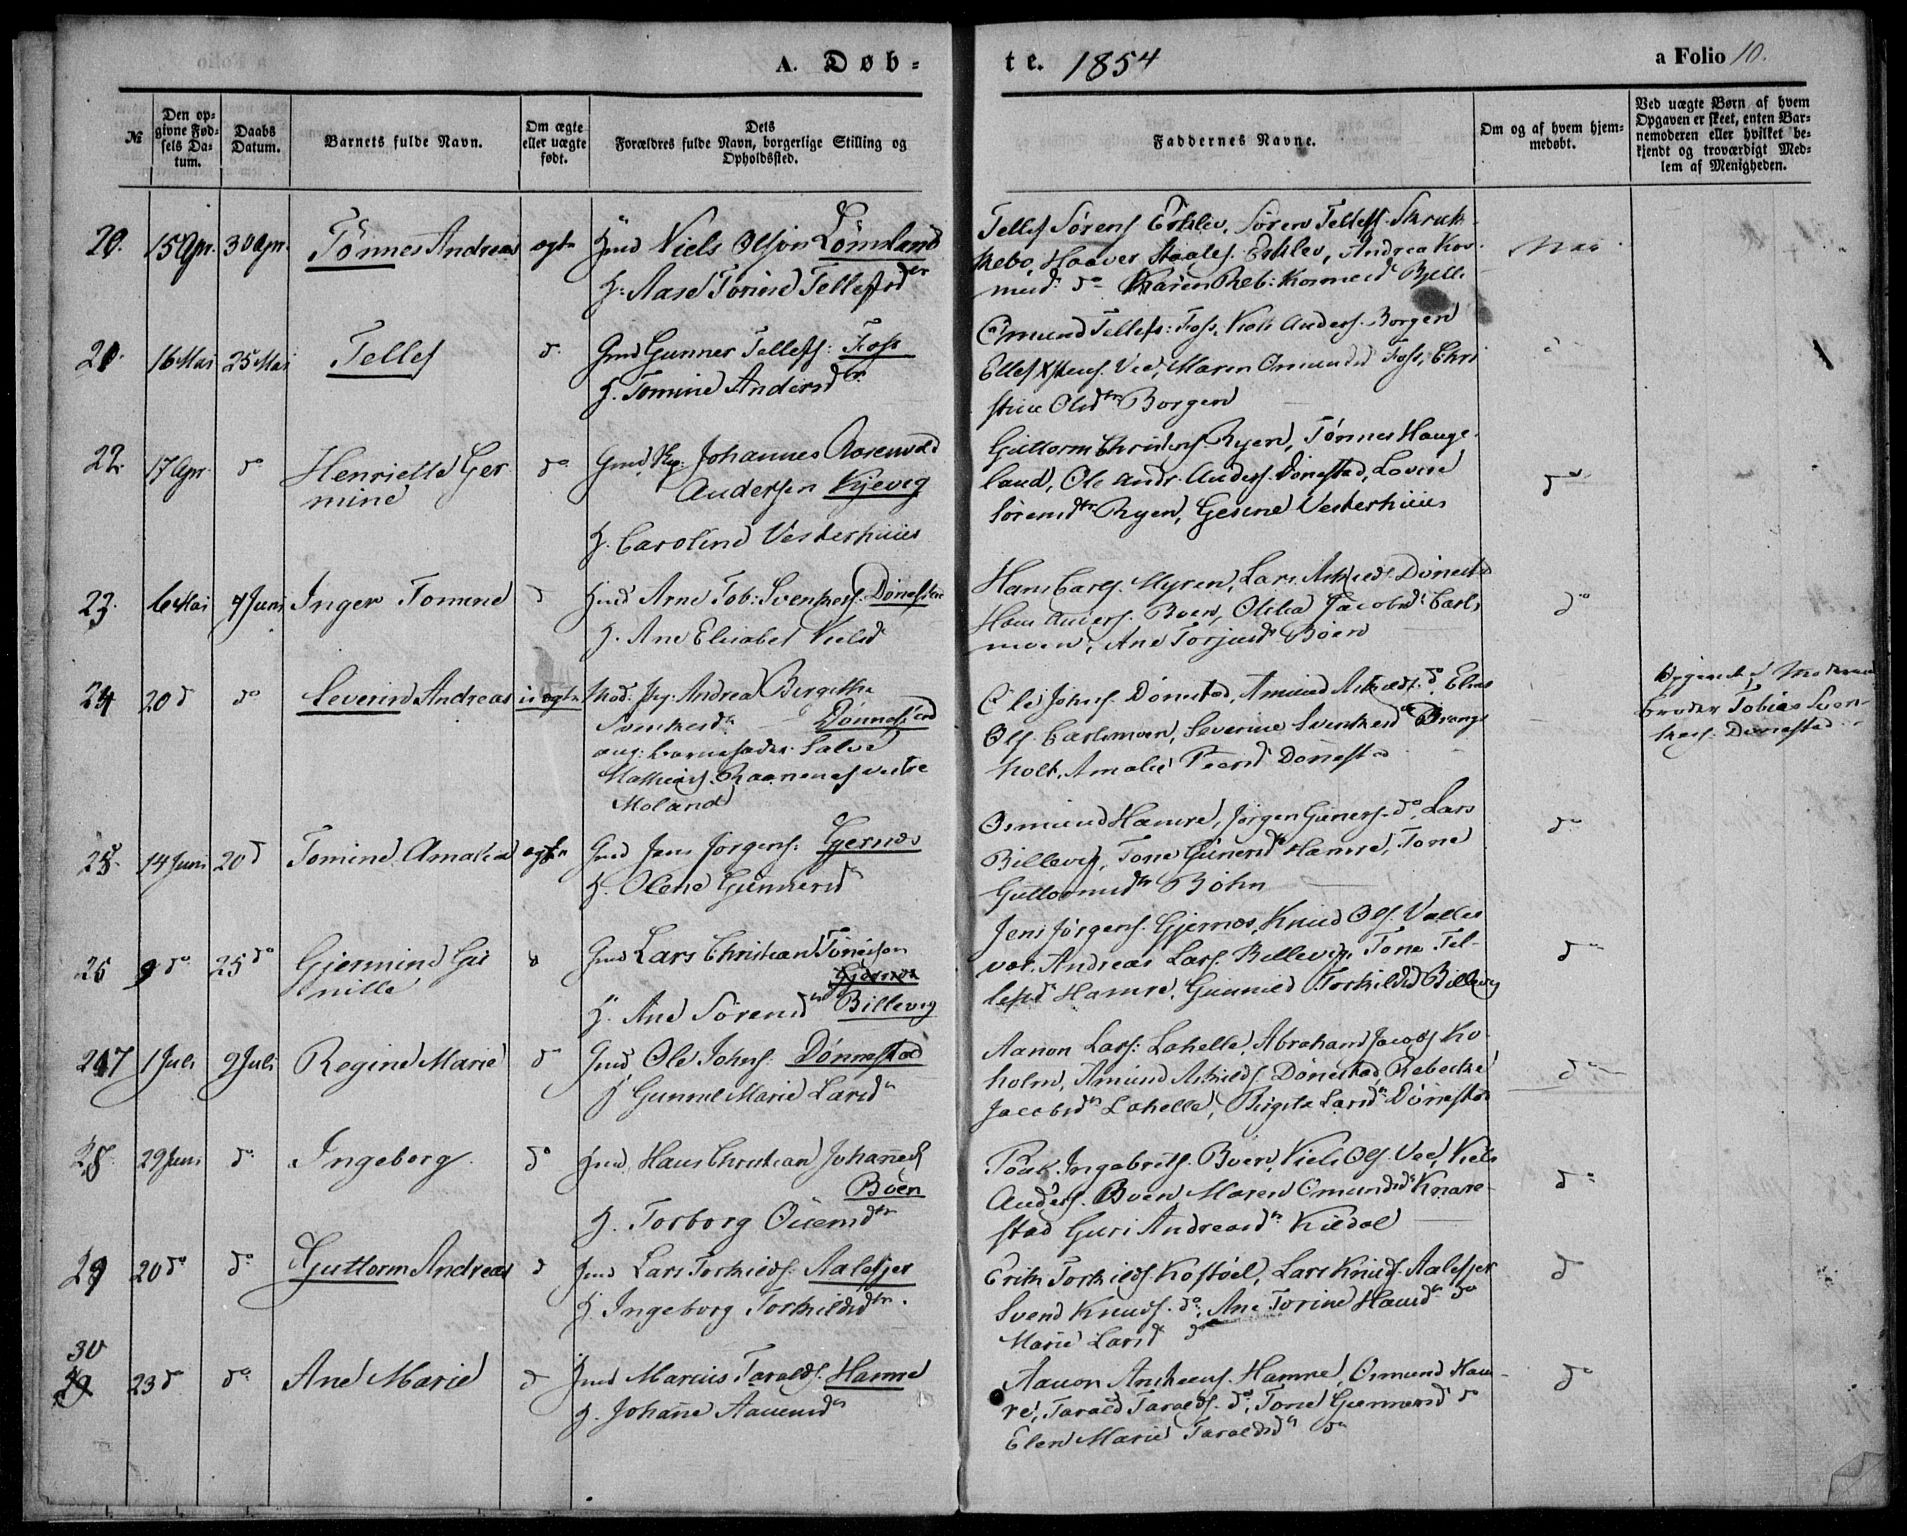 A. Døb-
te. 1854
a Folio 10.
№
Den op-
givne Fød-
sels Da-
tum.
Daabs
Datum.
Barnets fulde Navn.
Om ægte
eller uægte
født.
Dets
Forældres fulde Navn, borgerlige Stilling og
Opholdssted.
Faddernes Navne.
Om og af hvem hjem-
medøbt.
Ved uægte Børn af hvem
Opgaven er skeet, enten Bar-
nemoderen eller hvilket be-
kjendt og troværdigt Med-
lem af Menigheden.
20. 15 Apr. 30 Apr. Tønnes Andreas ægte Gmd Niels Olsøn Lømsland
H: Aase Torine Tellefsdr
Tellef Sørens. Eshlev, Søren Tellefs.
Haaver Staales. Eshlev, Andrea
do Karen Reb:
Nei
21. 16 Mai 25 Mai Tellef d. Gmd Gunner Tellefs: Foss
H. Tomine Andersdtr.
Omund Tellefs: Foss, Niels Anders. Borgen
Vee, Maren Omundsd Foss, Chri
stine Olsdtr Borgen
22. 17 Apr do Henriette Ger
mine
do Gmd Johannes Aarenvold
Andersen Kjevig
H. Caroline Vesterhuus
Guttorm Christens. Ryen, Tønnes Hauge
land, Ole Andr. Anders. Dønestad, Lovise
Sørensdtr Ryen, Gesine Vesterhuus
do
23. 6 Mai 7 Juni Inger Tomine d Gmd Arne Tob: Svenkes. Dønestad
H. Ane Elisabet Nielsd
Hans Carls. Myren, Lars Askilds. Dønestad
Hans Anders. Boen, Olilia Jacobsd. Carls
moen, Ane Torjusd Boen
do
24 20 d do Severin Andreas uægte Mod. Pig. Andrea Birgithe
Svenkesdr Dønnestad
ang: barnefader Salve
Mathias. Raanenes vestre
Moland
Ole Johns. Dønestad, Amund Askilds. do, Elias
Ols. Carlsmoen, Severine Svenkesdr Drangs
holt, Amalie Dønestad
Opgivet af Moderens
broder Tobias Sven-
kes. Dønestad
25. 14 Juni 20 d Tomine Amalia ægte Gmd Jens Jørgens: Gjernes
H. Olene Gunnersd
Osmund Hamre, Jørgen Gunners. do, Lars
Billevig, Tone Gunersd Hamre, Tone
Guttormsdtr Bøhn
do
26 9 do 25 do Gjermine Gu
nille
d Gmd Lars Christian Tønesøn
Gjernes
H. Ane Sørensdtr Billevig
Jens Jørgens. Gjernes, Knud Ols. Valles
vær. Andreas Lars. Billevig, Tone Tel-
lefsd Hamre, Gunnild Torkildsd Billevig
do
27 1 Juli 9 Juli Regine Marie d Gmd, Ole Johns. Dønnestad
H Gunnel Marie Larsdr
Aanon Lars: Lahelle, Abraham Jacobs Ko
holm, Amund Askilds. Dønestad, Rebekke
Jacobsdr Lahelle, Birgite Larsdr Dønestad
do
28. 29 Juni do Ingeborg do Gmd, Hans Christian Johannes.
Boen
H. Torborg Ouensdtr
Ingebrets. Boen, Niels Ols. Vee, Niels
Anders. Boen Maren Omundsdr Knare-
stad Guri Andreasdr Kildal
do
29 20 do do Guttorm Andreas d Gmd Lars Torkilds. Aalefjer
H. Ingeborg Torkildsdtr.
Erik Torkilds. Lars Knuds. Aalefjer
Svend Knuds. do, Ane Torine Hansdr do
Marie Larsd do
d
30
29 23 d do Ane Marie d Gmd Marcus Taralds. Hamre
H. Johanne Aanensdr
Aanon Hamre, Osmund Ham
re, Tarald Taralds. do, Tone Gunnersd do
Elen Marie Taraldsdr do
do